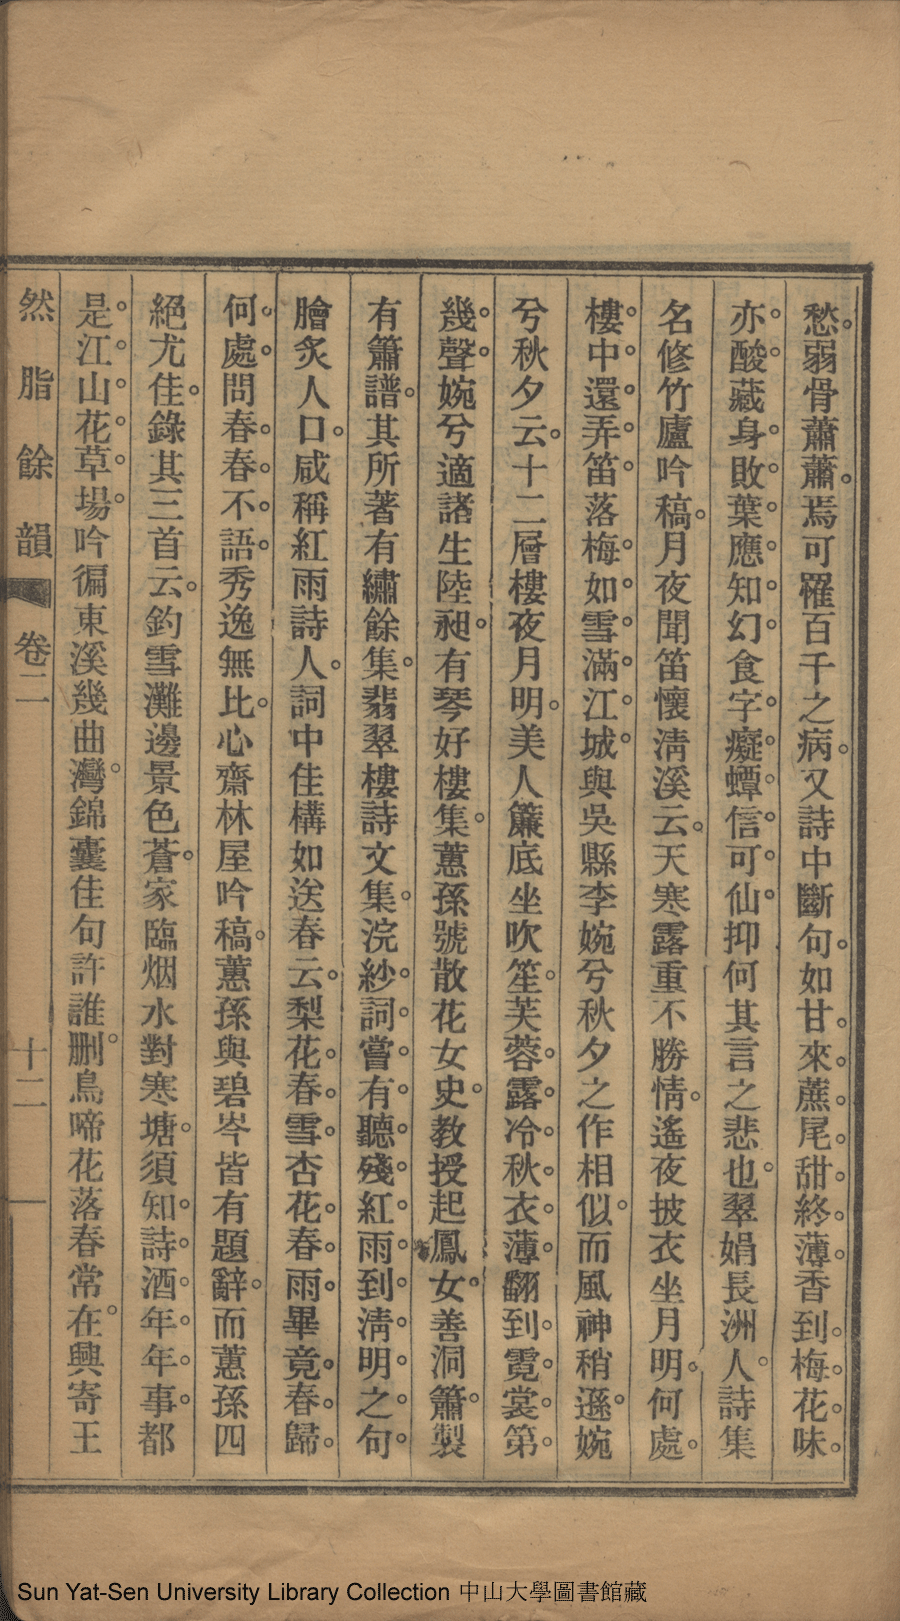 愁。弱骨蕭蕭。焉可罹百千之病。又詩中斷句。如甘。來。蔗。尾。甜。終。薄。香到。梅。花。味。
亦。酸。藏身。敗。葉。應。知。幻。食字。癡。蟫。信。可。仙。抑何其言之悲也。翠娟長洲人。詩集
名修竹廬吟稿。月夜聞笛懷淸溪云。天寒露重不勝情。遙夜披衣坐月明。何處。
樓。中。還。弄。笛。落梅。如。雪。滿。江。城。與吳縣李婉兮秋夕之作相似。而風神稍遜。婉
兮秋夕云。十二層樓夜月明。美人簾底坐吹笙。芙蓉。露。冷。秋。衣。薄。翻到。霓。裳。第。
幾。聲。婉兮適諸生陸昶。有琴好樓集。蕙孫號散花女史。教授起鳳女。善洞簫。製
有簫譜。其所著有繡餘集。翡翠樓詩文集。浣紗。詞。嘗。有。聽。殘。紅。雨。到。淸。明。之。句。
膾炙人口。咸稱紅雨詩人。詞中佳構如送春云。梨花。春。雪。杏花。春。雨。畢竟。春。歸。
何。處。問春。春。不。語。秀逸無比。心齋林屋吟稿。蕙孫與碧岑皆有題辭。而蕙孫四
絕尤佳。錄其三首云。釣雪灘邊景色蒼。家臨烟水對寒塘。須知。詩。酒。年。年。事。都
是。江。山。花。草。場。吟徧東溪幾曲灣。錦囊佳句許誰刪。鳥啼花落春常在。興寄王
然脂餘韻 卷二 十二
Sun Yat-Sen University Library Collection 中山大學圖書館藏